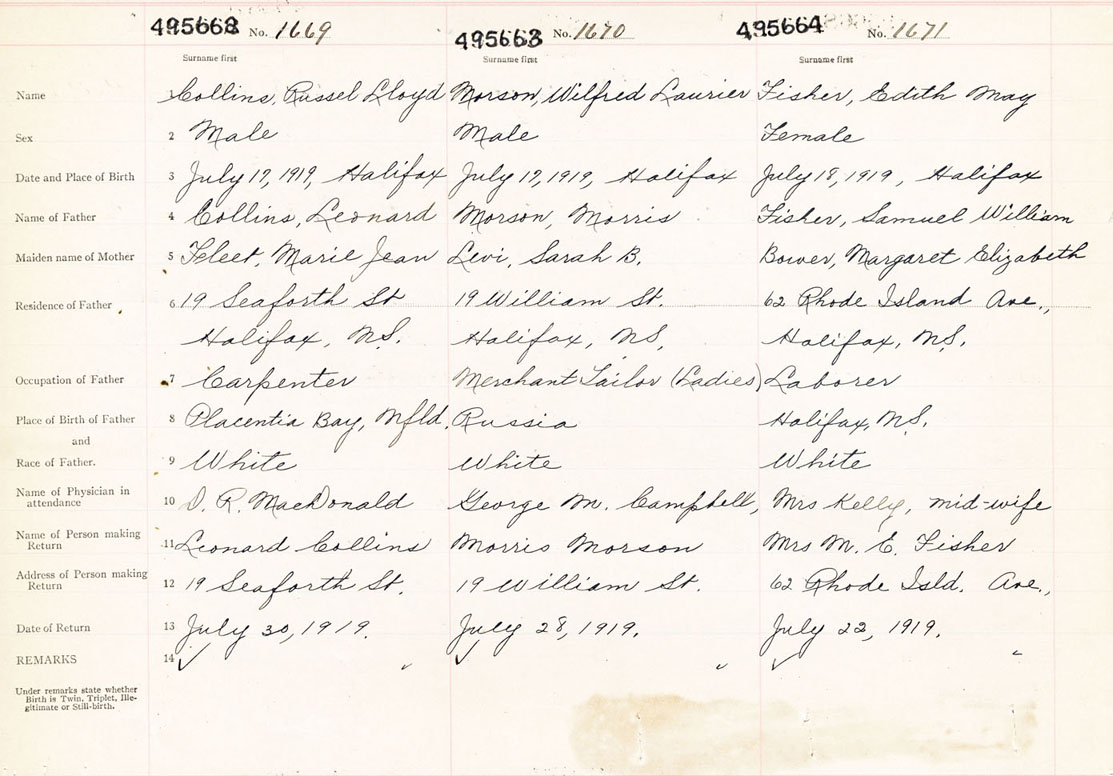 495662 No. 1669 495663 No. 1670 495664 No. 1671
Surname first Surname first Surname first
Name Collins, Russel Lloyd Morson, Wilfred Laurier Fisher, Edith May
Sex 2 Male Male Female
Date and Place of Birth 3 July 17, 1919, Halifax July 17, 1919, Halifax July 18, 1919, Halifax
Name of Father 4 Collins, Leonard Morson, Morris Fisher, Samuel William
Maiden name of Mother 5 Fleet, Marie Jean Levi, Sarah B. Bower, Margaret Elizabeth
Residence of Father 6 19 Seaforth St 19 William St. 62 Rhode Island Ave.,
Halifax, NS. Halifax, NS, Halifax, NS.
Occupation of Father 7 Carpenter Merchant Tailor (Ladies) Laborer
Place of Birth of Father 8 Placentia Bay, Nfld. Russia Halifax, NS.
and
Race of Father. 9 White White White
Name of Physician in
attendance 10 D. R. MacDonald George M. Campbell, Mrs Kelly, mid-wife
Name of Person making
Return 11 Leonard Collins Morris Morson Mrs M. E. Fisher
Address of Person making
Return 12 19 Seaforth St. 19 William St. 62 Rhode Isld. Ave.,
Date of Return 13 July 30, 1919. July 28, 1919. July 22, 1919.
REMARKS 14
Under remarks state whether
Birth is Twin, Triplet, Ille-
gitimate or Still-birth.